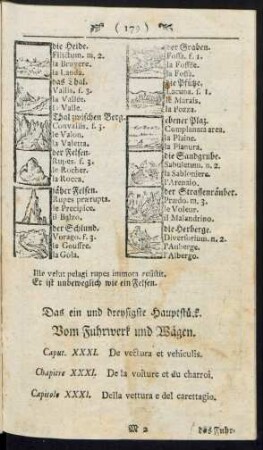 ( 179 )
die Heide.
Filictum. m. 2.
la Bruyere.
la Landa.
das Thal.
Vallis. f. 3.
la Vallée.
il Valle.
Thal zwischen Berg.
Convallis. f. 3.
le Valon.
la Valetta.
der Felsen.
Rupes. f. 3.
le Rocher.
la Rocca.
jäher Felsen.
Rupes prærupta.
le Precipice.
il Balzo.
der Schlund.
Vorago. f. 3.
le Gouffre.
la Gola.
der Graben.
Fossa. f. 1.
le Fossé.
la Fossa.
die Pfütze.
Lacuna. f. 1.
le Marais.
la Pozza.
ebener Plaz.
Complanata area.
la Plaine.
la Pianura.
die Sandgrube.
Sabuletum. n. 2.
la Sabloniere.
l'Arenaio.
der Straßenräuber.
Prædo. m. 3.
le Voleur.
il Malandrino.
die Herberge.
Diversorium. n. 2.
l'Auberge.
l'Albergo.
Ille velut pelagi rupes immota resistit.
Er ist unbeweglich wie ein Felsen.
Das ein und dreysigste Hauptstück.
Vom Fuhrwerk und Wägen.
Caput. XXXI. De vectura et vehiculis.
Chapitre XXXI. De la voiture et du charroi.
Capitolo XXXI. Della vettura e del carettagio.
M 2 das Fuhr-